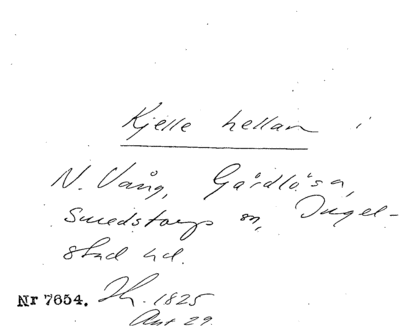 Kjelle hellan i
N. Vång, Gårdlösa,
Smedstorps sn, Ingel-
stad hd.
Nr 7654. Th. 1825
Ant 29.